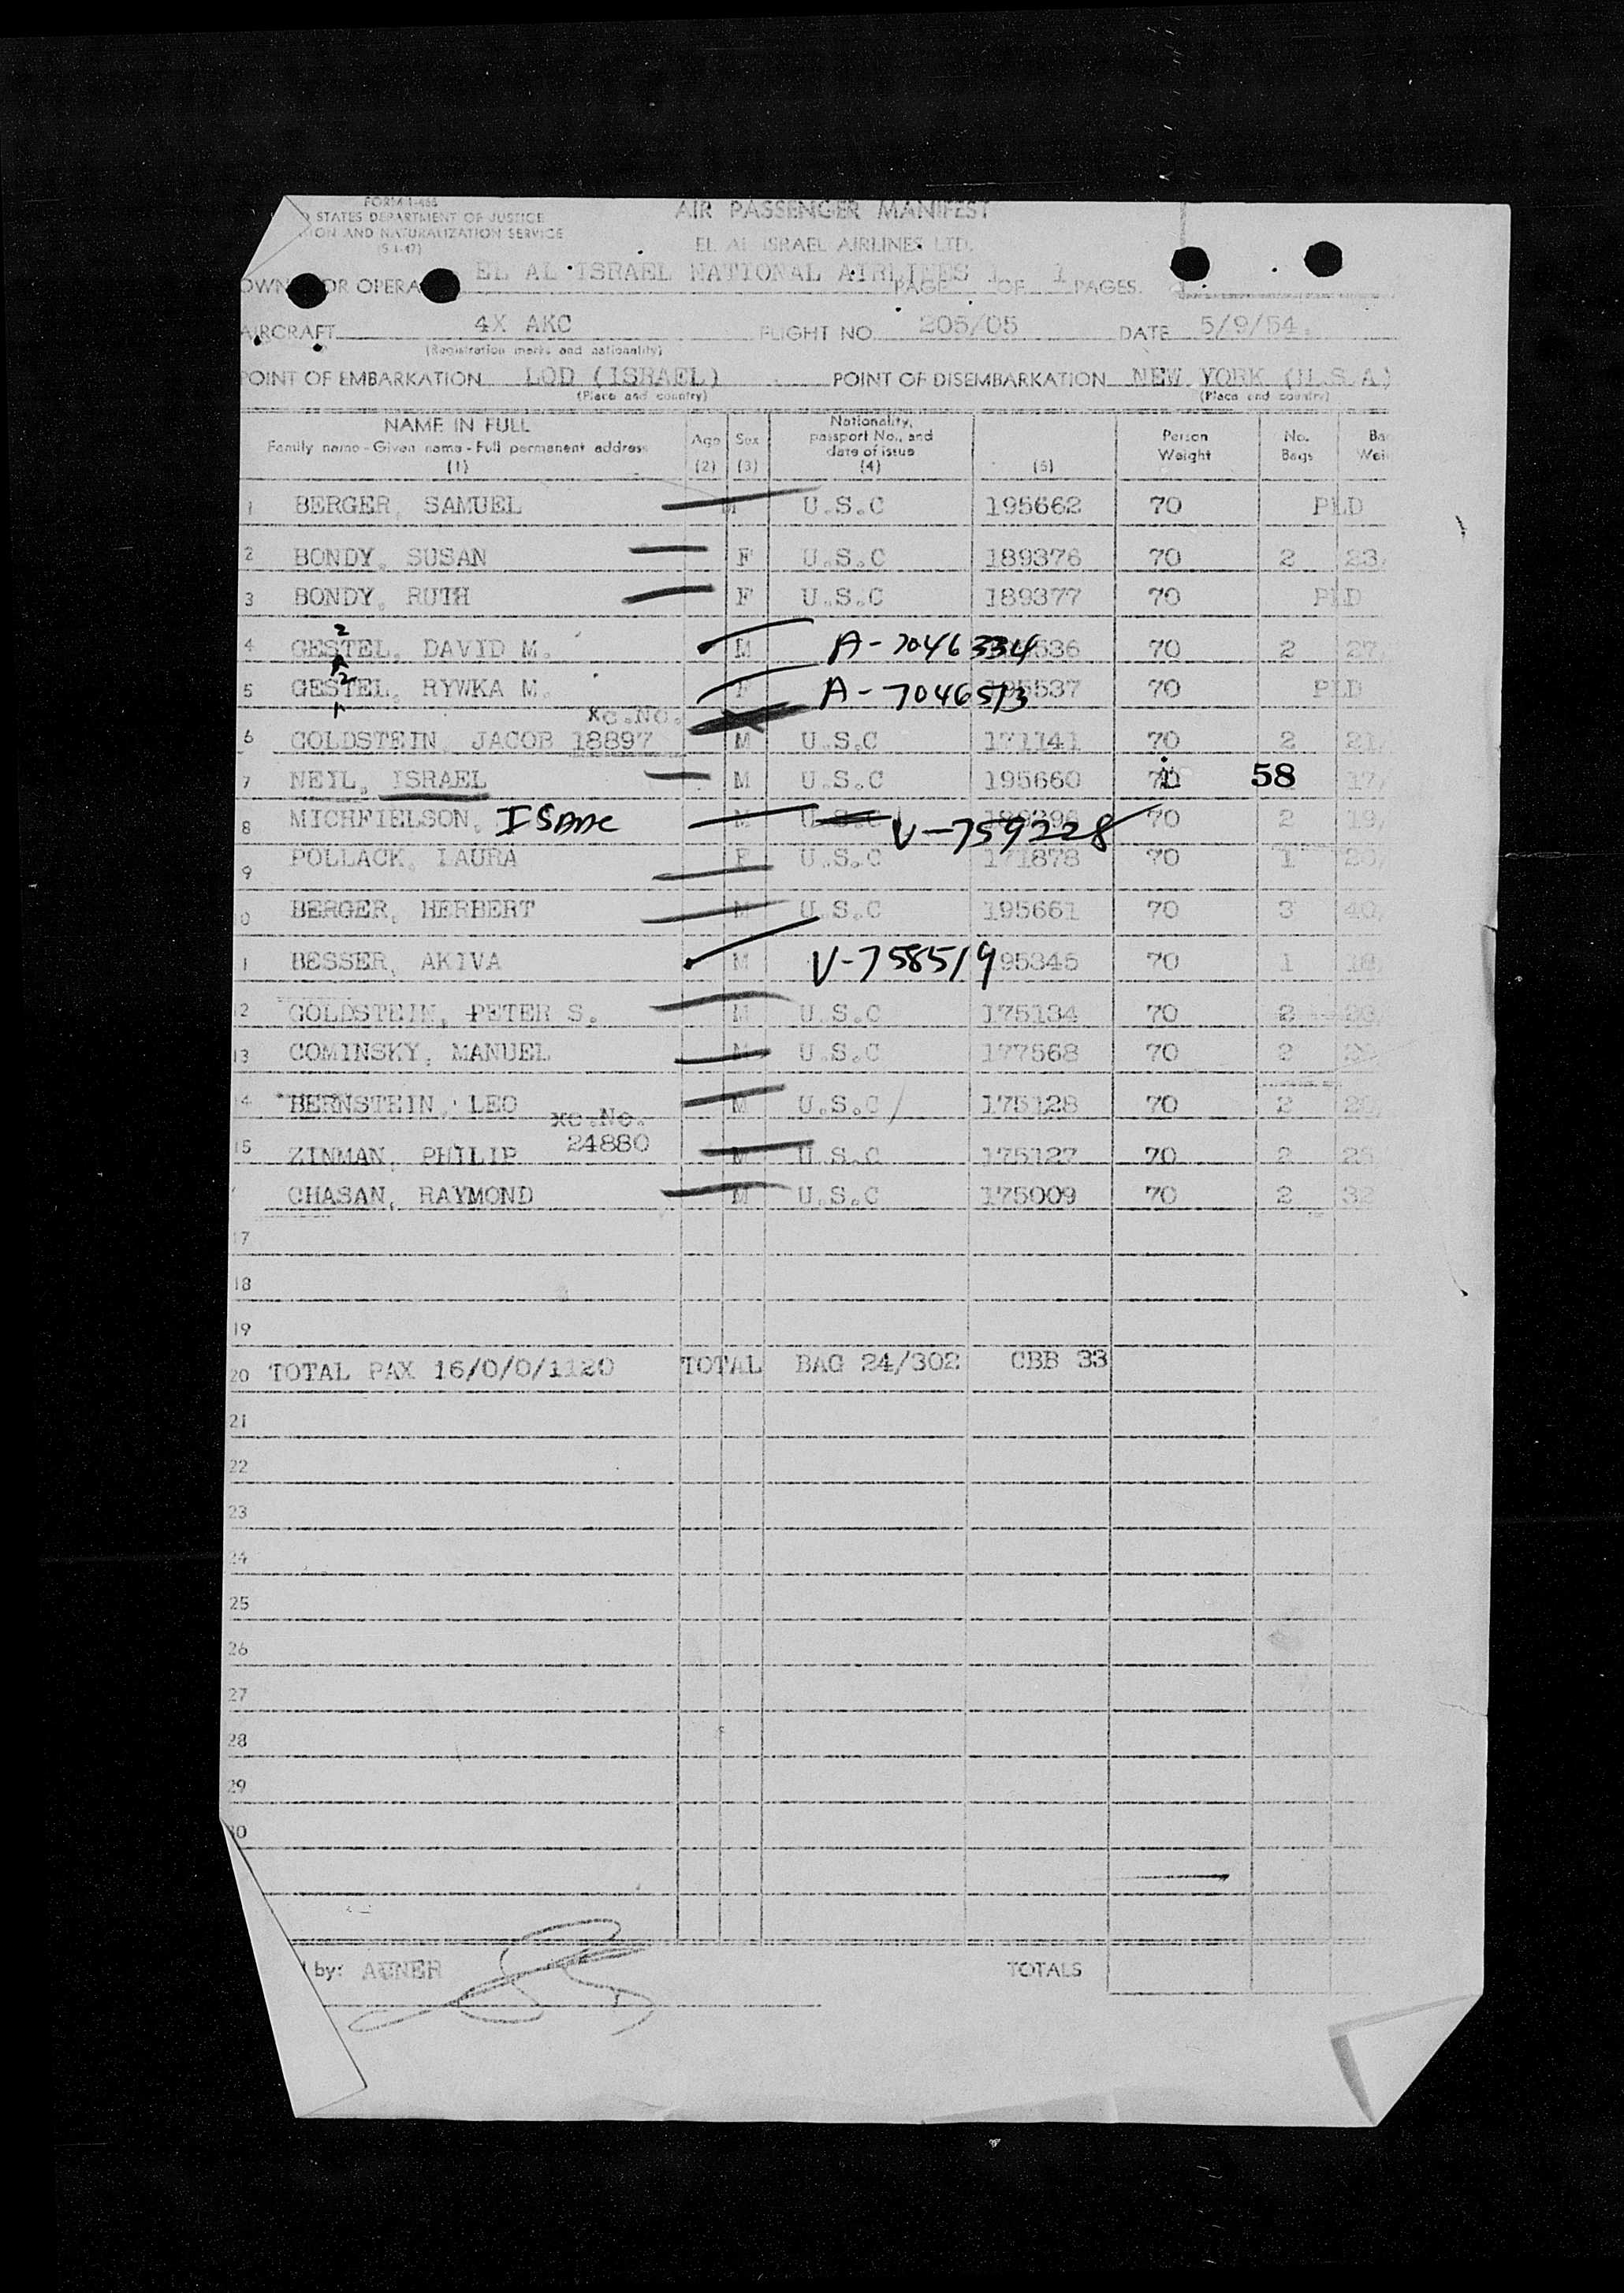 FORM I-466
STATES DEPARTMENT OF JUSTICE
ION AND NATURALIZATION SERVICE
(5-1-47)
AIR PASSENGER MANIFEST
EL AL ISRAEL AIRLINES LTD.
OWN OR OPERA EL AL ISRAEL NATIONAL AIRLINES PAGE 1 OF 1 PAGES.
AIRCRAFT 4X AKC FLIGHT NO. 205/05 DATE 5/9/54.
(Registration marks and nationality)
POINT OF EMBARKATION LOD (ISRAEL) POINT OF DISEMBARKATION NEW YORK (U.S.A)
(Place and country) (Place and country)
NAME IN FULL
Family name - Given name - Full permanent address
(1)
Age
(2)
Sex
(3)
Nationality,
passport No., and
date of issue
(4)
(5)
Person
Weight
No.
Bags
1 BERGER, SAMUEL M U.S.C 195662 70 PLD
2 BONDY, SUSAN F U.S.C 189376 70 2 23
3 BONDY, RUTH F U.S.C 189377 70 PLD
4 GESTEL, DAVID M. M A-7046334 70 2 27
2
5 GESTEL, RYWKA M. F A-7046513 70 PLD
2
xc.No.
6 GOLDSTEIN, JACOB 18897 M U.S.C 171141 70 2 21
7 NEIL, ISRAEL M U.S.C 195660 70 58 17
8 MICHFIELSON, ISAAC M U.S.C V-759228 70 2 19
9 POLLACK, LAURA F U.S.C 171878 70 1
0 BERGER, HERBERT M U.S.C 195661 70 3 40
1 BESSER, AKIVA M V-758519 95345 70 1 18
12 GOLDSTEIN, PETER S. M U.S.C 175134 70 2
13 COMINSKY, MANUEL M U.S.C 177568 70 2
14 BERNSTEIN, LEO M U.S.C 175128 70 2
xc.No.
24880
15 ZINMAN, PHILIP M U.S.C 175127 70 2 25
CHASAN, RAYMOND M U.S.C 175009 70 2 32
17
18
19
20 TOTAL PAX 16/0/0/1120 TOTAL BAG 24/302 CBB 33
21
22
23
24
25
26
27
28
29
30
by: AUNER TOTALS